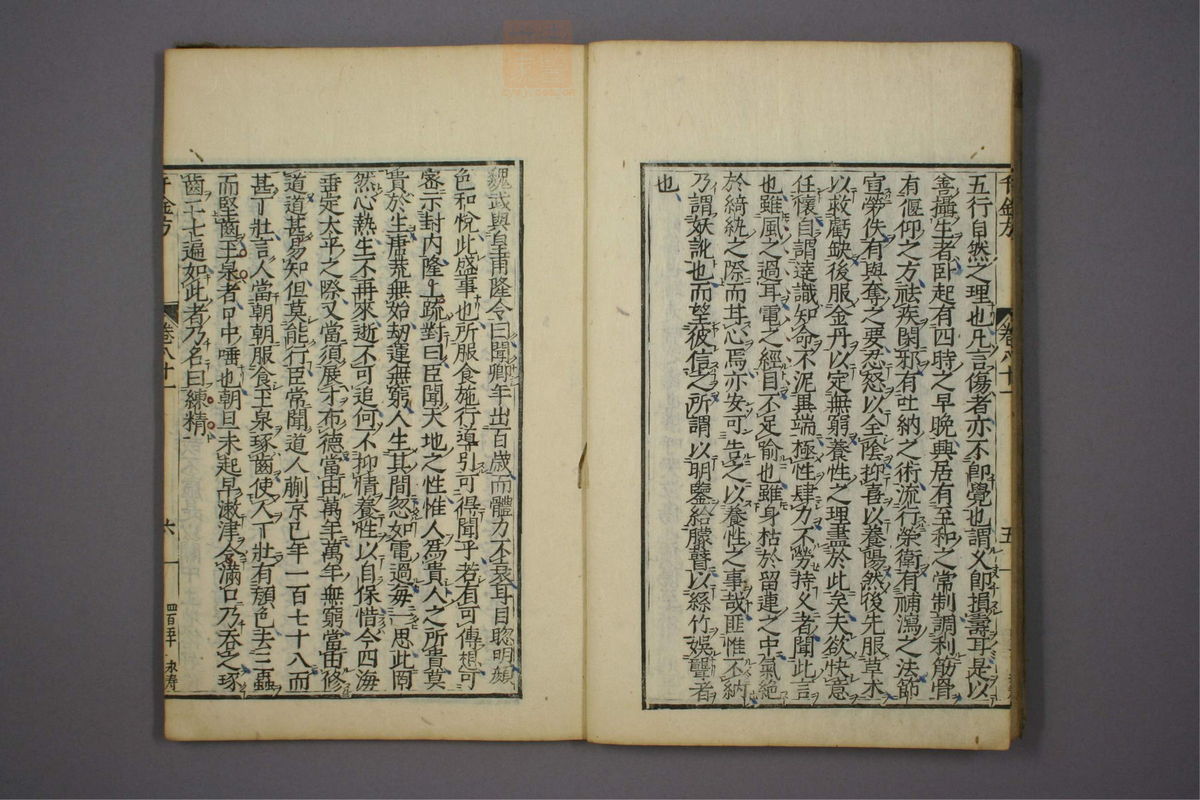 五行自然之理也凡言傷者亦不即覺也謂乆即損壽耳是以
善攝生者卧起有四時之早晚興居有至和之常制調利筋骨
有偃仰之方祛疾閑邪有吐納之術流行榮衛有補瀉之法節
宣勞佚有與奪之要忍怒以全陰抑喜以養陽然後先服草木
以救虧缺後服金丹以定無窮養性之理盡於此矣夫欲快意
任懷自謂達識知命不泥異端極性肆力不勞持乆者聞此言
也雖風之過耳電之經目不足喻也雖身枯於留連之中氣絶
於綺紈之際而甘心焉亦安可告之以養性之事哉匪惟不納
乃謂妖訛也而望彼信之所謂以明鑒給矇瞽以絲竹娛聾者
也
千金方
卷八十一
五
魏武與皇甫隆令曰聞卿年出百歲而體力不衰耳目聦明顔
色和悅此盛事也所服食施行導引可得聞乎若有可傳想可
密示封内隆上疏對曰臣聞天地之性惟人爲貴人之所貴莫
貴於生唐荒無始劫運無窮人生其間忽如電過每一思此罔
然心熱生不再來逝不可追何不抑情養性以自保惜今四海
垂定太平之際又當須展才布德當由萬年萬年無窮當由修
道道甚易知但莫能行臣常聞道人蒯京已年一百七十八而
甚丁壯言人當朝朝服食玉泉琢齒使人丁壯有顔色去三蟲
而堅齒玉泉者口中唾也朝旦未起早漱津令滿口乃吞之琢
齒二七遍如此者乃名曰練精
千金方
卷八十一
六